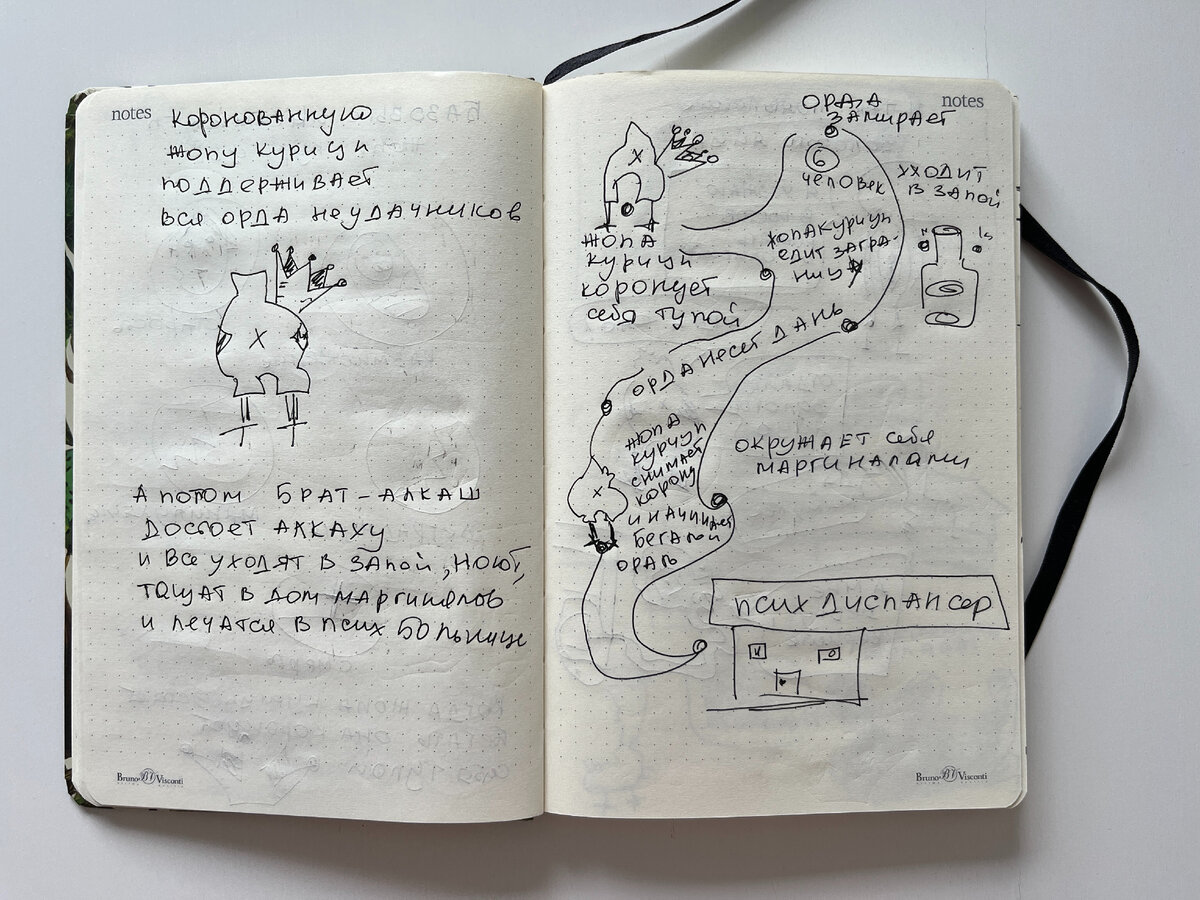 notes
коронованную
жопу курицы
поддерживает
вся орда неудачников
А потом брат-алкаш
достоет алкаху
и все уходят в запой, ноют,
тащат в дом маргиналов
и лечатся в психбольнице
Bruno Visconti
notes
орда
замирает
6
человек
уходит
в запой
жопа
курицы
коронует
себя тупой
жопа курицы
едит загра-
ницу
орда несет дань
жопа
курицы
снимает
корону
и начинает
бегать
орать
окружает себя
маргиналами
психдиспансер
Bruno Visconti